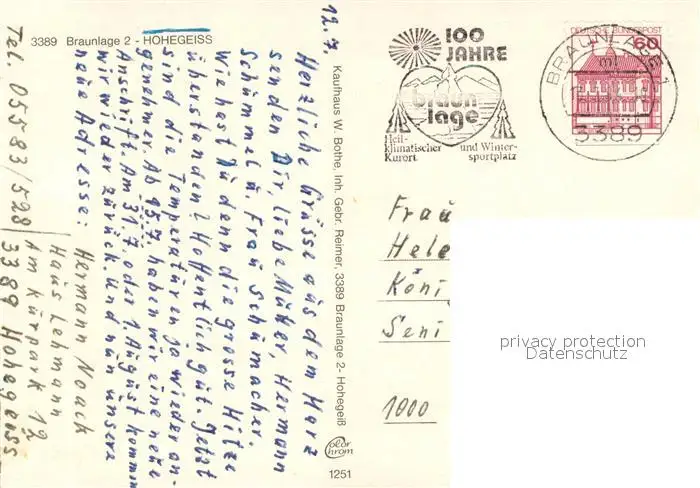 3389 Braunlage 2 - HOHEGEISS
12.7
Herzliche Grüsse aus dem Harz
senden Dir, liebe Mutter, Hermann
Schümmel u. Frau Schumacher.
Wie hast Du denn die grosse Hitze
überstanden? Hoffentlich gut. Jetzt
sind die Temperaturen ja wieder an-
genehmer. Ab 15.7. haben wir eine neue
Anschrift. Am 31.7. oder 1. August kommen
wir wieder zurück. Und nun unsere
neue Adresse: Hermann Noack
Haus Lehmann
Am Kurpark 12
3389 Hohegeiss
Tel. 05583/528
Kaufhaus W. Bothe, Inh. Gebr. Reimer, 3389 Braunlage 2- Hohegeiß
Color
chrom
1251
100
JAHRE
braun
lage
Heil-
klimatischer
Kurort
und Winter-
sportplatz
DEUTSCHE BUNDESPOST
60
BRAUNLAGE 1
3389
Frau
Hele
Köni
Seni
1000
privacy protection
Datenschutz